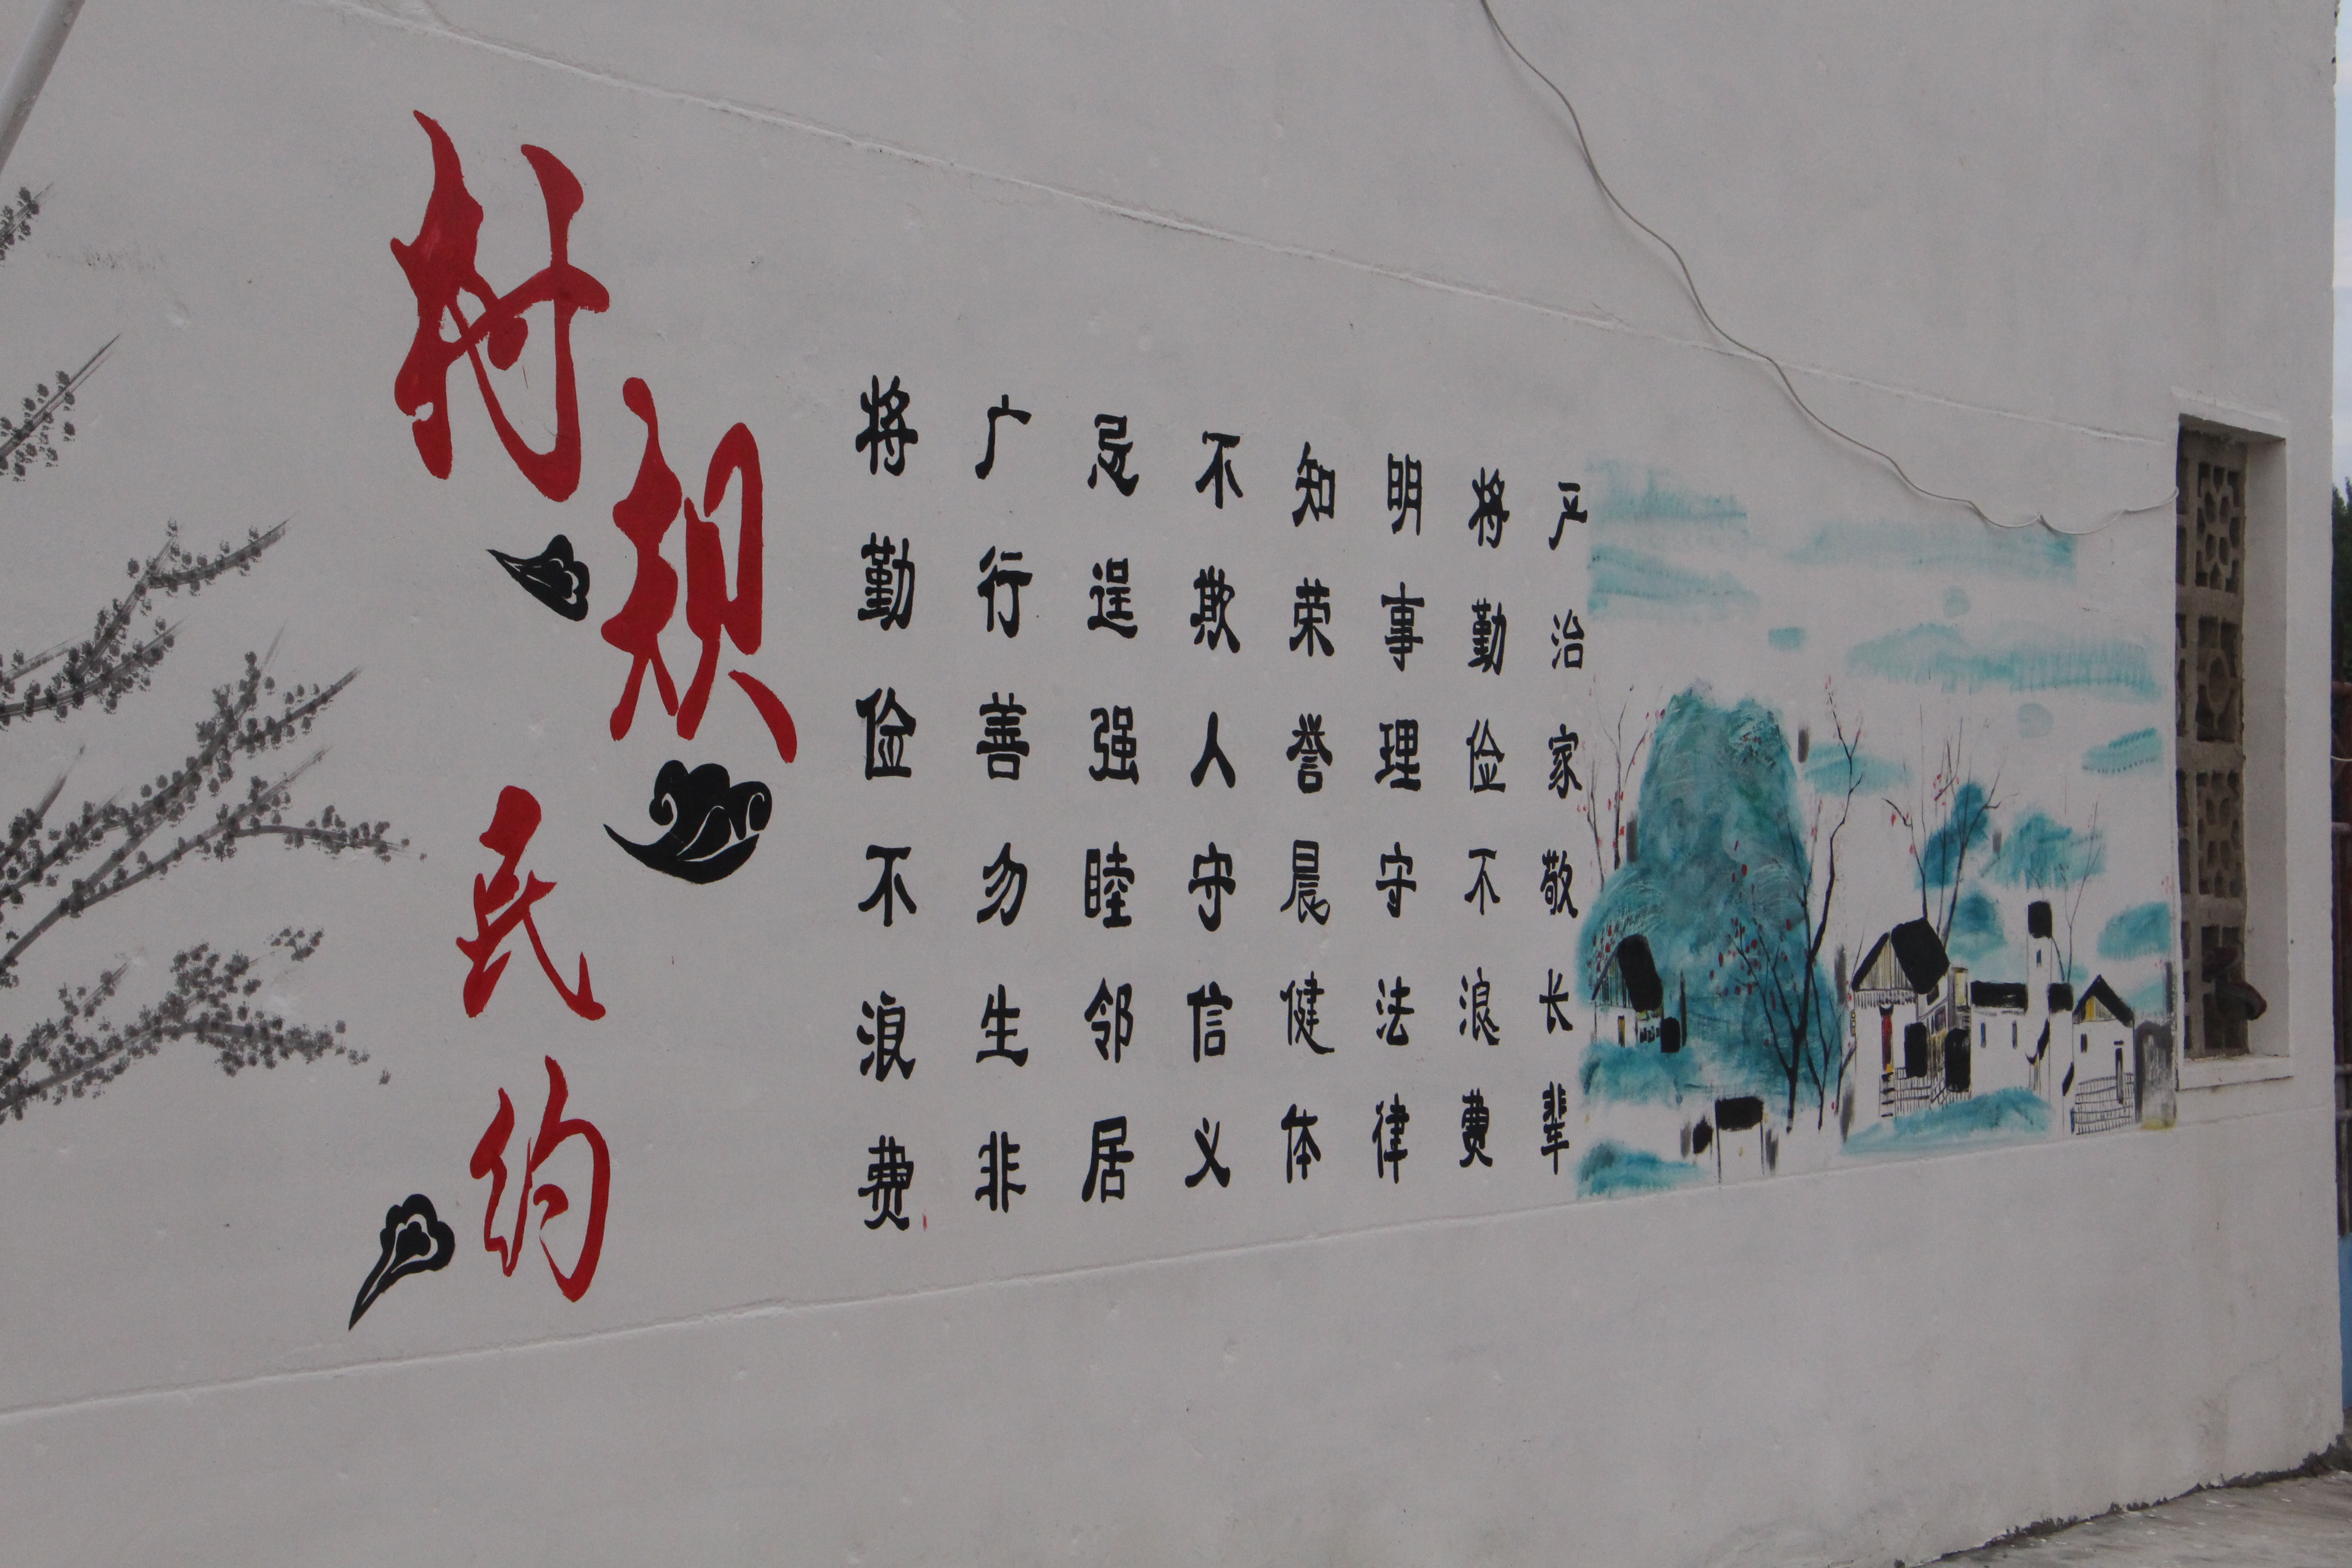 村规民约
将勤俭不浪费
广行善勿生非
忌逞强睦邻居
不欺人守信义
知荣誉晨健体
明事理守法律
将勤俭不浪费
严治家敬长辈